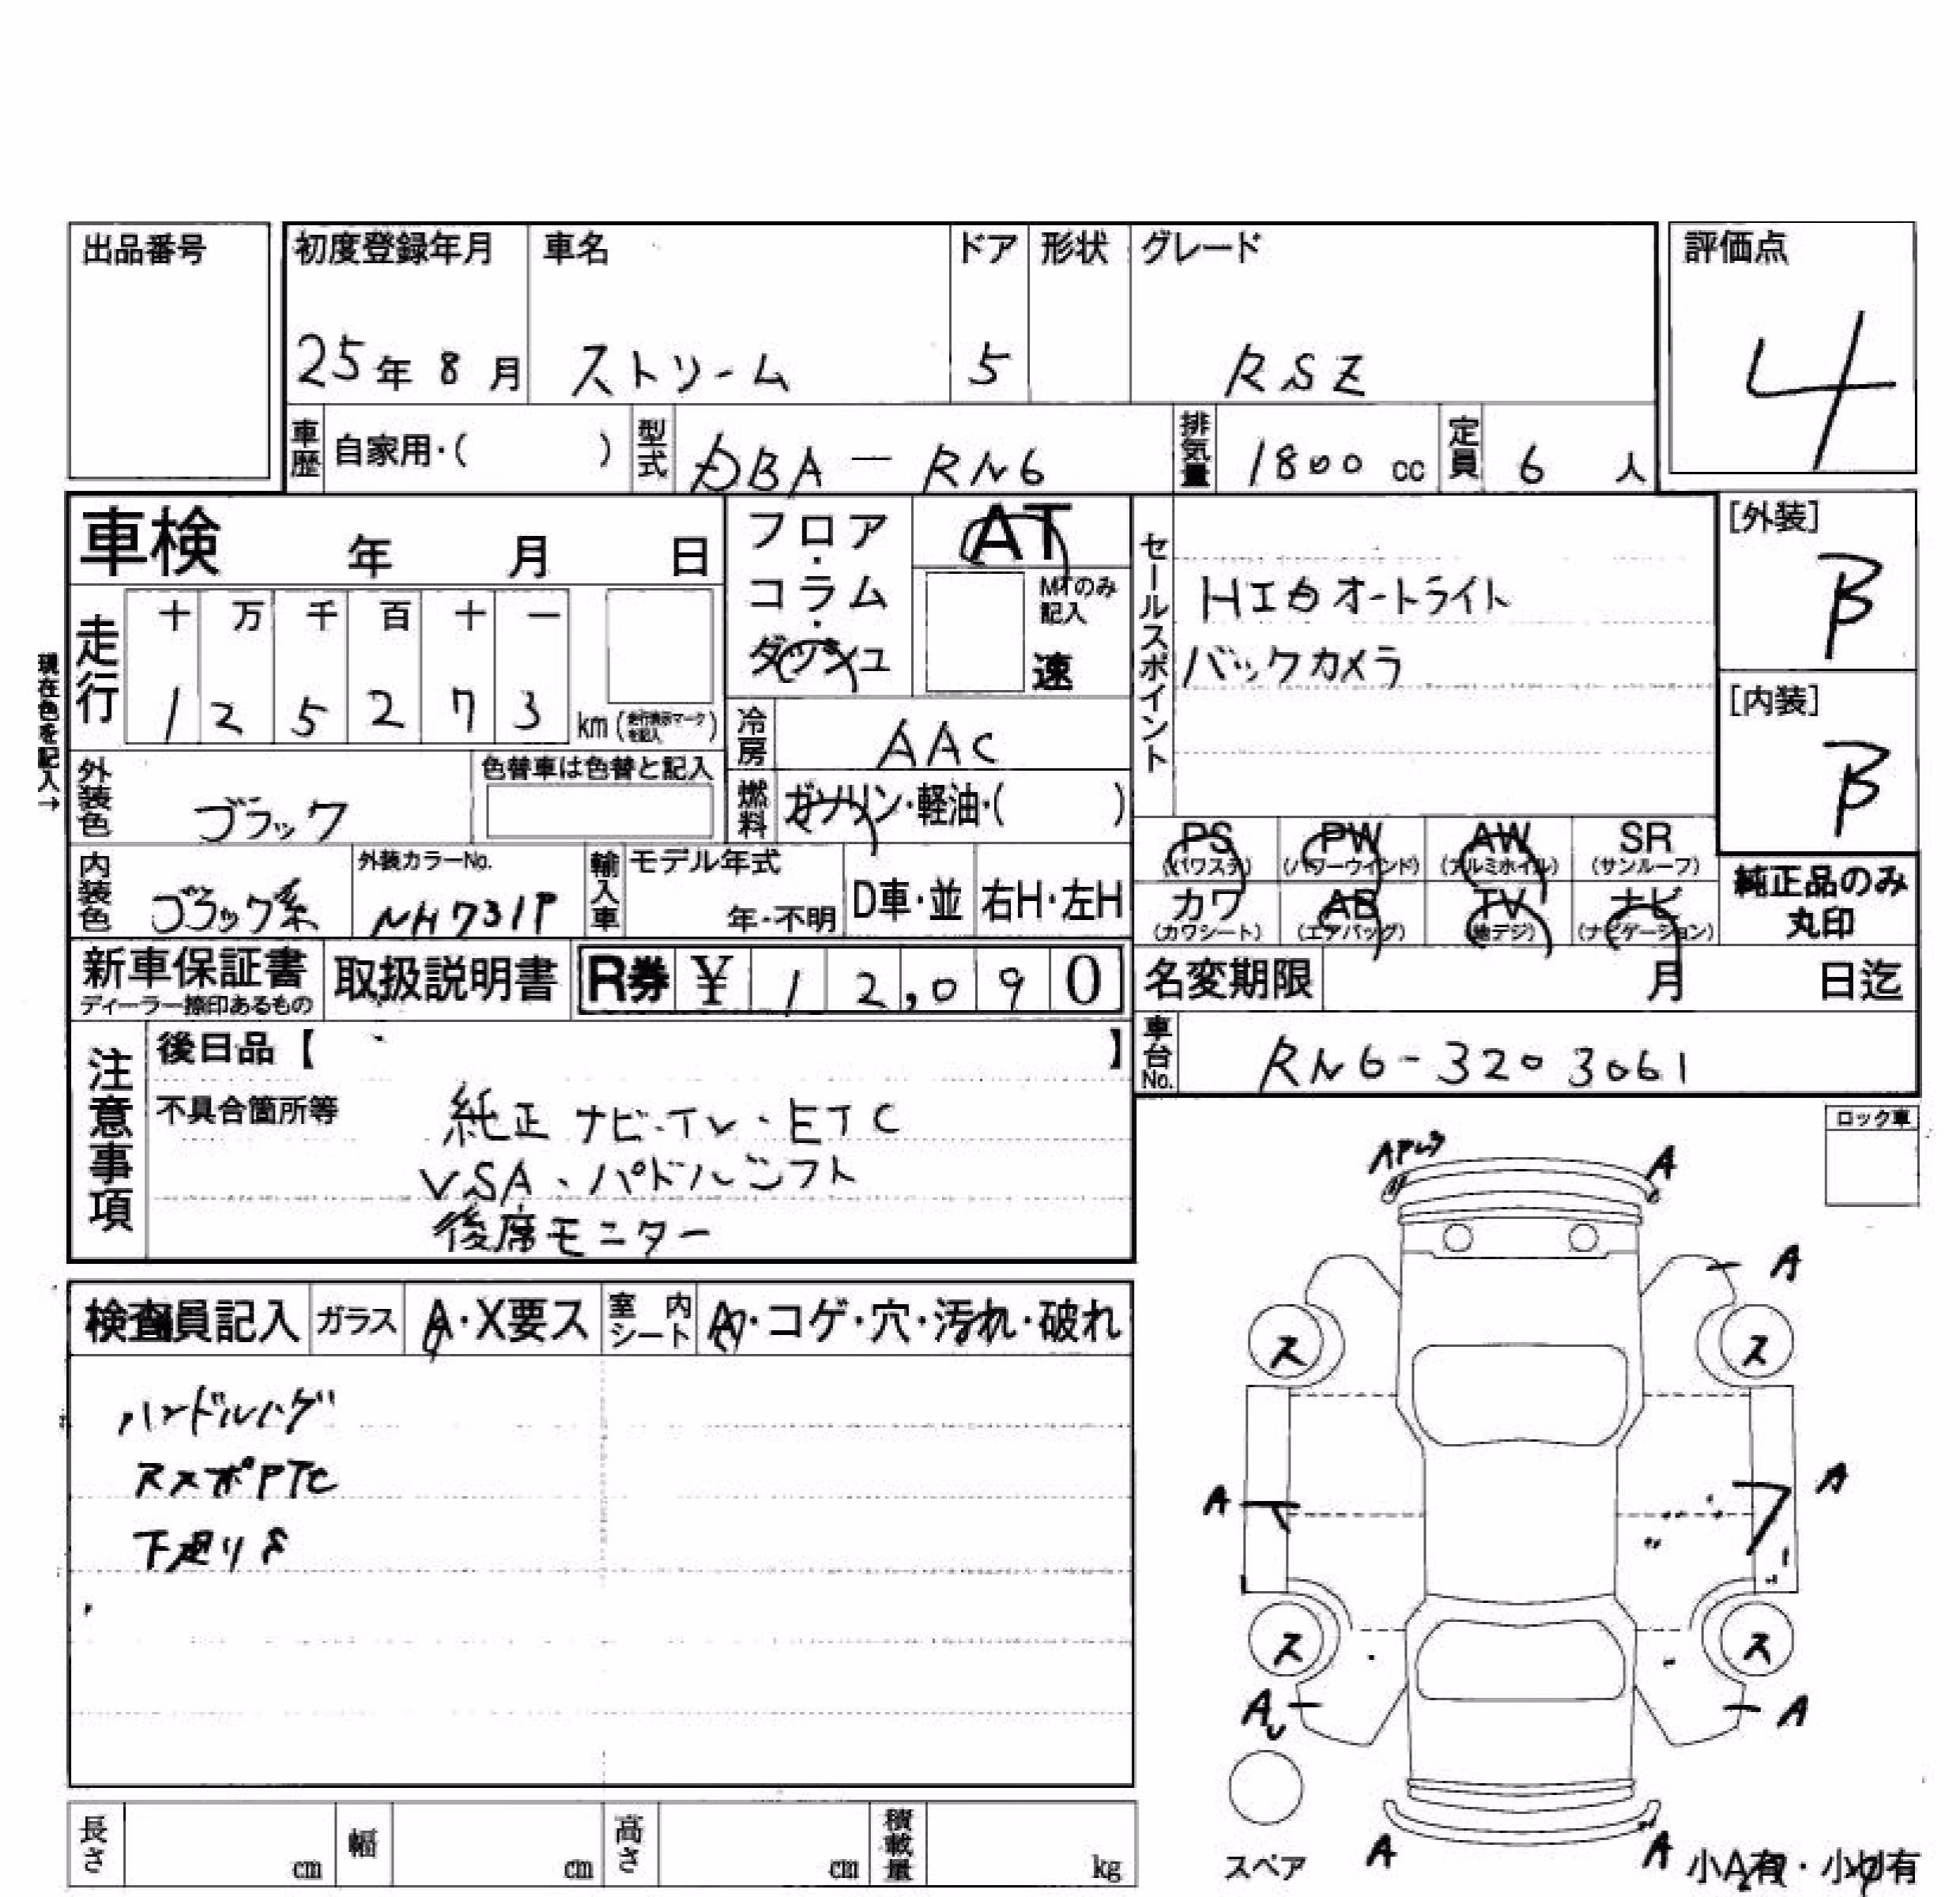 出品番号
初度登録年月 車名 ドア 形状 グレード 評価点
25年 8月 ストリーム 5 RSZ 4
車歴 自家用・( ) 型式 DBA-RN6 排気量 1800cc 定員 6人
車検 年 月 日
フロア・コラム・ダッシュ
AT
MTのみ記入
速
セールスポイント
HIDオートライト
バックカメラ
[外装]
B
[内装]
B
現在色を記入→
走行 十 万 千 百 十 一
1 2 5 2 7 3 km(走行表示マークを記入)
冷房 AAC
外装色 ブラック 色替車は色替と記入
燃料 ガソリン・軽油・( )
PS PW AW SR
(パワステ) (パワーウインド) (アルミホイル) (サンルーフ)
カワ AB TV ナビ
(カワシート) (エアバッグ) (地デジ) (ナビゲーション)
純正品のみ
丸印
内装色 ブラック系 外装カラーNo. NH731P 輸入車 モデル年式 年・不明 D車・並 右H・左H
新車保証書 取扱説明書 R券 ¥ 12,090
ディーラー捺印あるもの
名変期限 月 日迄
車台No. RN6-3203061
注意事項
後日品【 】
不具合箇所等
純正ナビ・TV・ETC
VSA、パドルシフト
後席モニター
ロック車
検査員記入 ガラス A・X要ス 室内シート A・コゲ・穴・汚れ・破れ
ハンドルハゲ
下廻りS
A
A
ス ス
A A
ス ス
A A
A A
スペア
小A有・小U有
長さ cm 幅 cm 高さ cm 積載量 kg